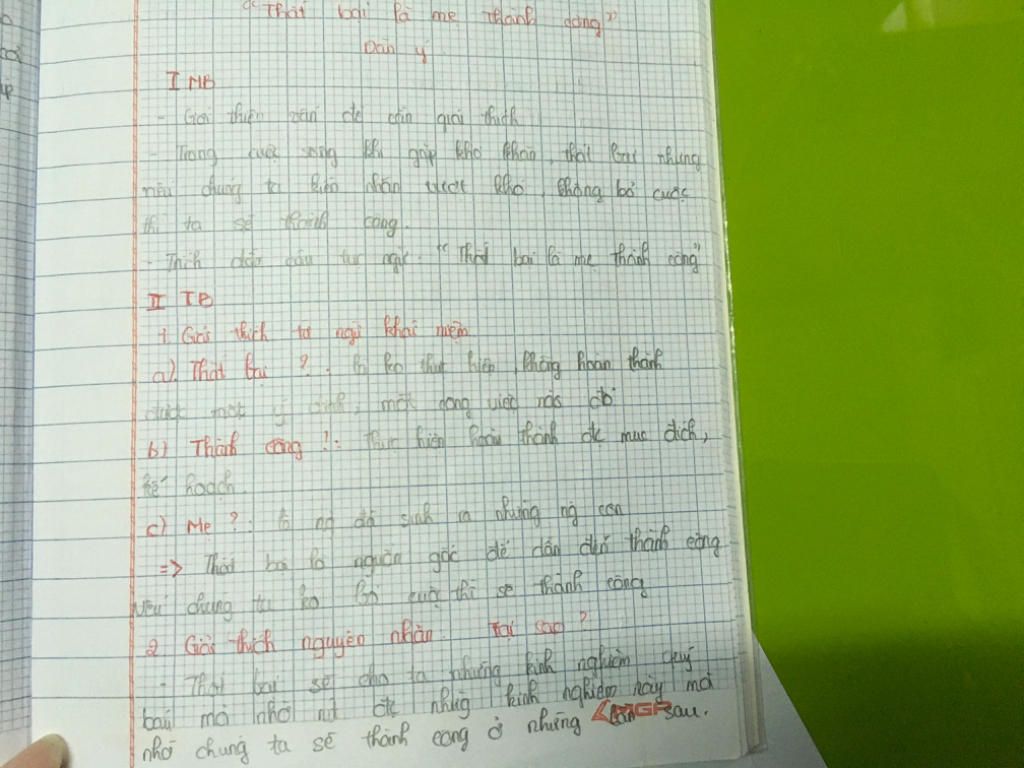 "Thất bại là mẹ thành công"
Dàn ý
I MB
- Giới thiệu vấn đề cần giải thích
- Trong cuộc sống khi gặp khó khăn, thất bại nhưng
nếu chúng ta kiên nhẫn vượt khó, không bỏ cuộc
thì ta sẽ thành công.
- Trích dẫn câu tục ngữ: "Thất bại là mẹ thành công"
II TB
1. Giải thích từ ngữ khái niệm
a). Thất bại ?: là ko thực hiện, không hoàn thành
được một ý định, một công việc nào đó
b) Thành công ?: thực hiện hoàn thành đc mục đích,
kế hoạch.
c) Mẹ ?: là ng đã sinh ra những ng con
=> Thất bại là nguồn gốc để dẫn đến thành công
Nếu chúng ta ko bỏ cuộc thì sẽ thành công
2 Giải thích nguyên nhân. Tại sao?
- Thất bại sẽ cho ta những kinh nghiệm quý
báu mà nhờ rút đc những kinh nghiệm này mà
nhờ chúng ta sẽ thành công ở những sau.